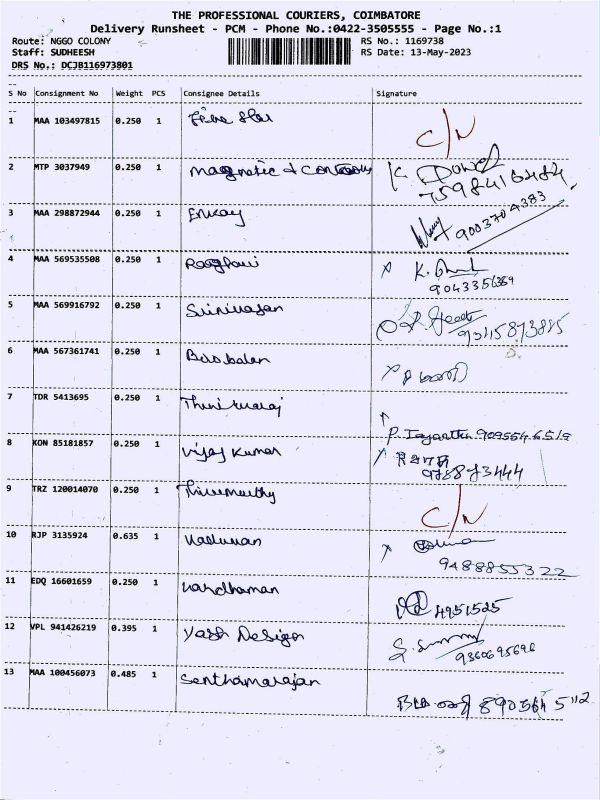 THE PROFESSIONAL COURIERS, COIMBATORE
Delivery Runsheet - PCM - Phone No.:0422-3505555 - Page No.:1
Route: NGGO COLONY RS No.: 1169738
Staff: SUDHEESH RS Date: 13-May-2023
DRS No.: DCJB116973801
S No Consignment No Weight PCS Consignee Details Signature
1 MAA 103497815 0.250 1 C/N
2 MTP 3037949 0.250 1 Magnetic & K.
7598416484
3 MAA 298872944 0.250 1 Enkay 9003704383
4 MAA 569535508 0.250 1 K.
5 MAA 569916792 0.250 1 Srinivasan 9345873885
6 MAA 567361741 0.250 1
7 TDR 5413695 0.250 1 Thirukuraj
8 KON 85181857 0.250 1 Vijay Kumar
9 TRZ 120014070 0.250 1 Thirumurthy C/N
10 RJP 3135924 0.635 1
9488855322
11 EDQ 16601659 0.250 1 Vardhaman 4951525
12 VPL 941426219 0.395 1 Yash Design
9360695696
13 MAA 100456073 0.485 1 Senthamarajan